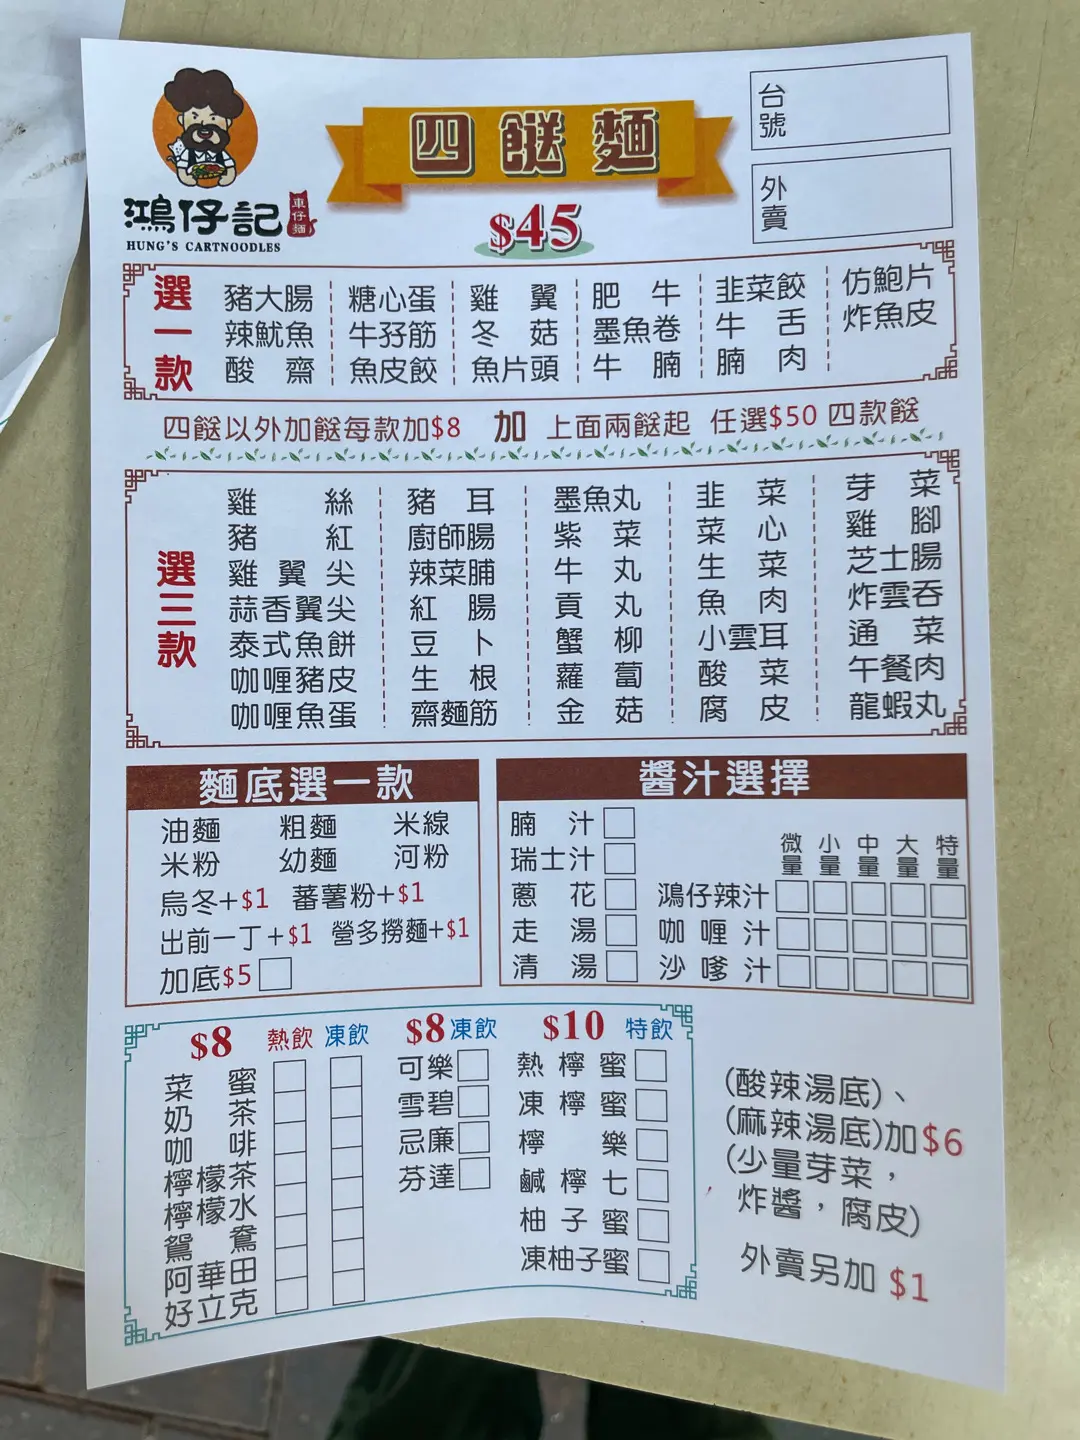 鴻仔記
車仔麵
HUNG'S CARTNOODLES
四餸麵
$45
台號
外賣
選一款
豬大腸 糖心蛋 雞翼 肥牛 韭菜餃 仿鮑片
辣魷魚 牛孖筋 冬菇 墨魚卷 牛舌 炸魚皮
酸齋 魚皮餃 魚片頭 牛腩 腩肉
四餸以外加餸每款加$8 加 上面兩餸起 任選$50 四款餸
選三款
雞絲 豬耳 墨魚丸 韭菜 芽菜
豬紅 廚師腸 紫菜 菜心 雞腳
雞翼尖 辣菜脯 牛丸 生菜 芝士腸
蒜香翼尖 紅腸 貢丸 魚肉 炸雲吞
泰式魚餅 豆卜 蟹柳 小雲耳 通菜
咖喱豬皮 生根 蘿蔔 酸菜 午餐肉
咖喱魚蛋 齋麵筋 金菇 腐皮 龍蝦丸
麵底選一款
油麵 粗麵 米線
米粉 幼麵 河粉
烏冬+$1 蕃薯粉+$1
出前一丁+$1 營多撈麵+$1
加底$5
醬汁選擇
腩汁
瑞士汁
蔥花
走湯
清湯
微量 小量 中量 大量 特量
鴻仔辣汁
咖喱汁
沙嗲汁
$8 熱飲 凍飲
菜蜜
奶茶
咖啡
檸檬茶
檸檬水
鴛鴦
阿華田
好立克
$8 凍飲
可樂
雪碧
忌廉
芬達
$10 特飲
熱檸蜜
凍檸蜜
檸樂
鹹檸七
柚子蜜
凍柚子蜜
(酸辣湯底)、
(麻辣湯底)加$6
(少量芽菜，
炸醬，腐皮)
外賣另加 $1